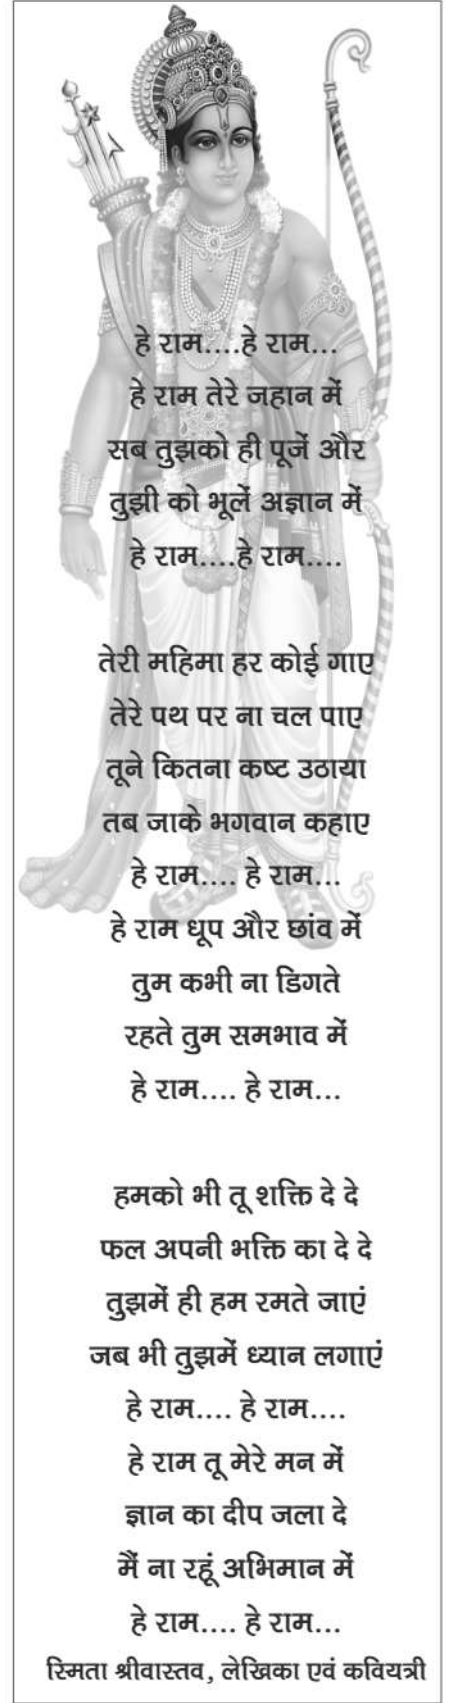 हे राम....हे राम...
हे राम तेरे जहान में
सब तुझको ही पूजें और
तुझी को भूलें अज्ञान में
हे राम....हे राम....
तेरी महिमा हर कोई गाए
तेरे पथ पर ना चल पाए
तूने कितना कष्ट उठाया
तब जाके भगवान कहाए
हे राम.... हे राम...
हे राम धूप और छांव में
तुम कभी ना डिगते
रहते तुम समभाव में
हे राम.... हे राम...
हमको भी तू शक्ति दे दे
फल अपनी भक्ति का दे दे
तुझमें ही हम रमते जाएं
जब भी तुझमें ध्यान लगाएं
हे राम.... हे राम....
हे राम तू मेरे मन में
ज्ञान का दीप जला दे
मैं ना रहूं अभिमान में
हे राम.... हे राम...
स्मिता श्रीवास्तव, लेखिका एवं कवियत्री